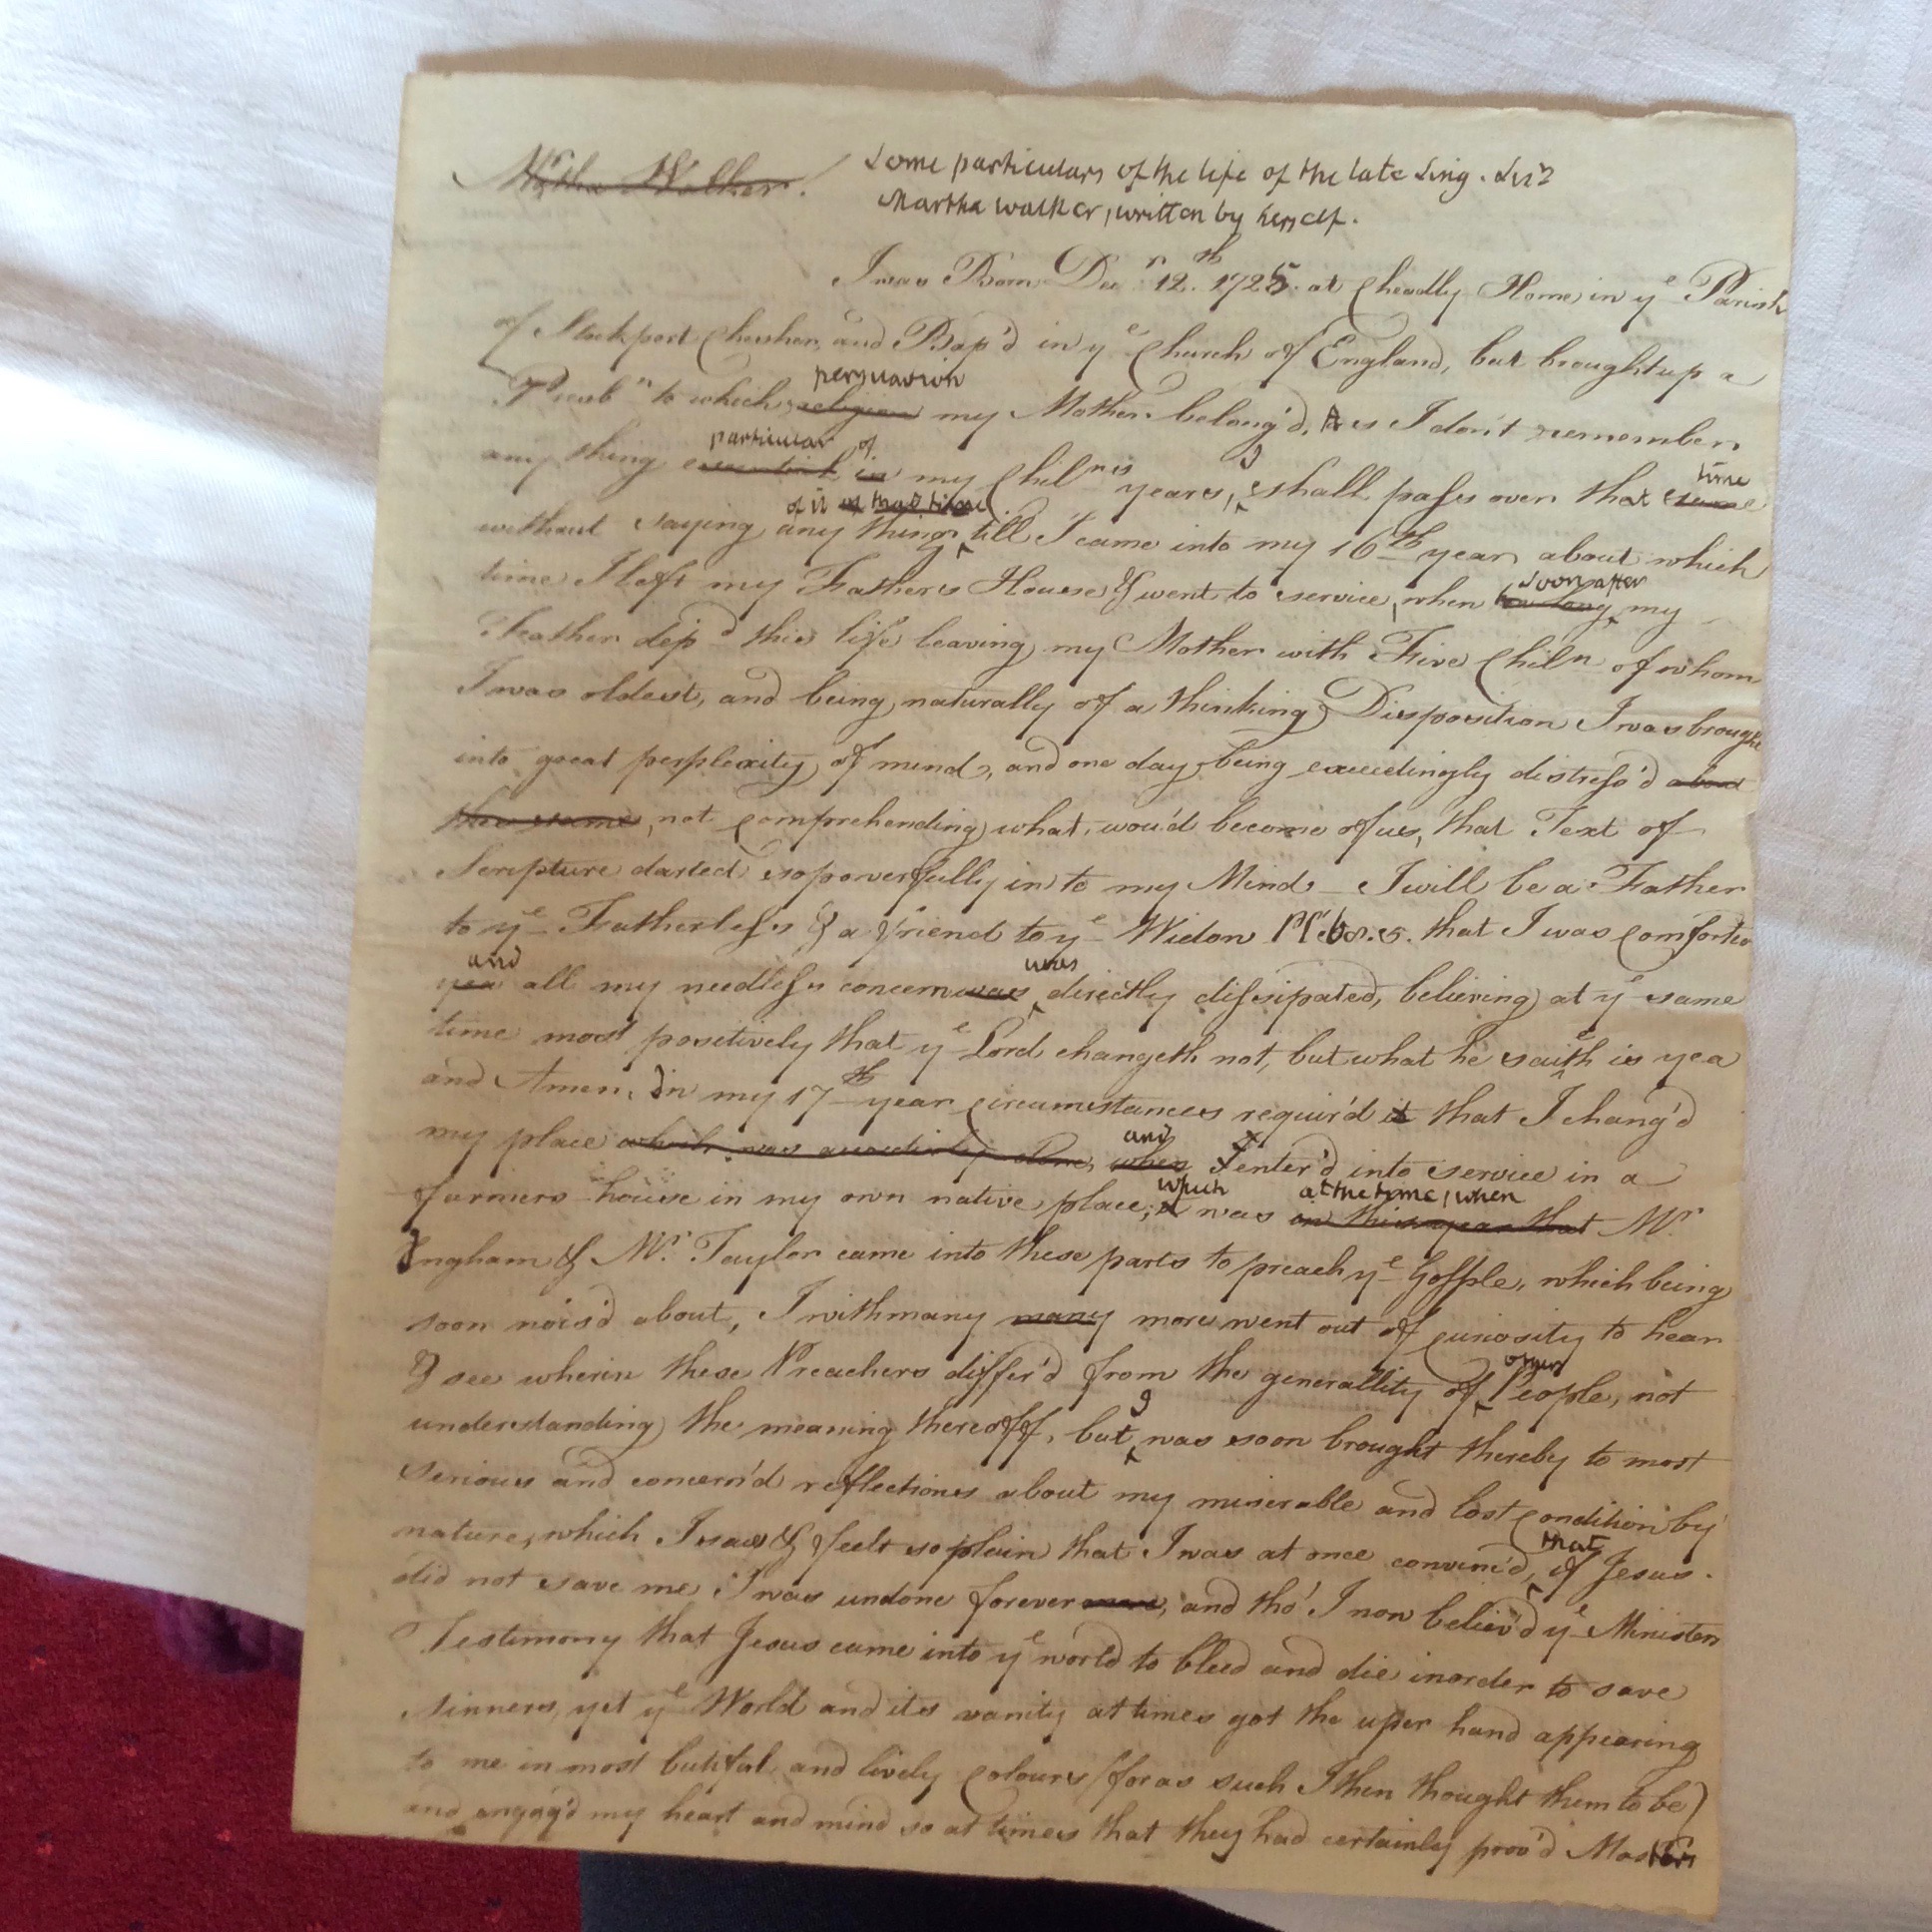 Martha Walker.
Some particulars of the life of the late Sing. Sisr
Martha Walker, written by herself.
I was Born Decr 12th 1725. at Cheadly Home in ye Parish
of Stockport Cheshier, and Bap'd in ye Church of England, but brought up a
persuasion
Presbn to which religion my Mother belong'd, As I don't remember
particular of
any thing essential in my Chilnis years, I shall pass over that time
of it
without saying any thing till I came into my 16th year about which
soon after
time I left my Fathers House & went to service, when my
Father dep'd this life leaving my Mother with Five Chiln of whom
I was oldest, and being naturally of a thinking Disposition I was brought
into great perplexity of mind, and one day being exceedingly distress'd about
the same, not comprehending what wou'd become of us, that Text of
Scripture darted so powerfully in to my Mind - I will be a Father
to ye Fatherless & a friend to ye Widow Ps. 68.5. that I was comforted
and was
yea all my needless concern was directly dissipated, believing at ye same
time most positively that ye Lord changeth not, but what he saieth is yea
and Amen. In my 17th year circumstances requir'd it that I chang'd
and
my place which was accordingly done, when I enter'd into service in a
which at the time, when
farmers house in my own native place, it was in this year that Mr.
Ingham & Mr. Taylor came into these parts to preach ye Gospple, which being
soon nois'd about, I with many many more went out of curiosity to hear
other
& see wherin these Preachers differ'd from the generallity of People, not
I
understanding the meaning thereoff, but was soon brought thereby to most
serious and concern'd reflections about my miserable and lost condition by
that
nature, which I saw & feelt so plain that I was at once convinc'd, if Jesus
did not save me I was undone forever more, and tho' I now believ'd ye Ministers
Testimony that Jesus came into ye world to bleed and die inorder to save
sinners, yet ye World and its vanity at times got the uper hand appearing
to me in most butiful and lively colours (for as such I then thought them to be)
and engag'd my heart and mind so at times that they had certainly prov'd Masters